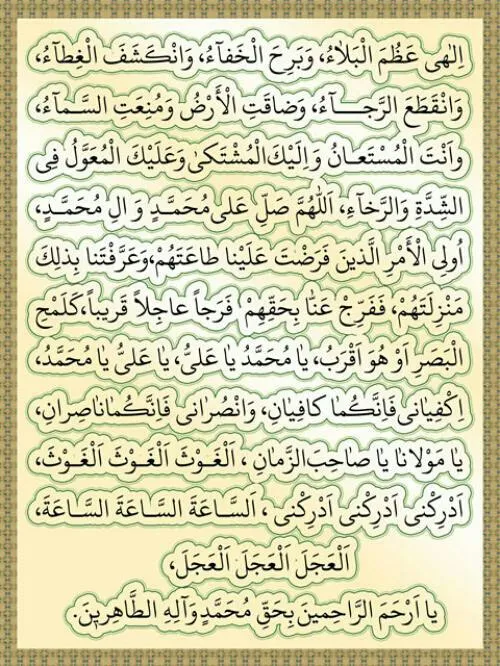 اِلٰهى عَظُمَ الْبَلاٰءُ، وَبَرِحَ الْخَفآءُ، وَانْكَشَفَ الْغِطآءُ،
وَانْقَطَعَ الرَّجــآءُ، وَضاقَتِ الْأَرْضُ وَمُنِعَتِ السَّمآءُ،
واَنْتَ الْمُسْتَعانُ وَاِلَيْكَ الْمُشْتَكىٰ وَعَلَيْكَ الْمُعَوَّلُ فِى
الشِّدَّةِ وَالرَّخآءِ، اَللّٰهُمَّ صَلِّ عَلىٰ مُحَمَّدٍ وَ الِ مُحَمَّدٍ،
اُولِى الْأَمْرِ الَّذينَ فَرَضْتَ عَلَيْنا طاعَتَهُمْ،وَعَرَّفْتَنا بِذلِكَ
مَنْزِلَتَهُمْ، فَفَرِّجْ عَنّا بِحَقِّهِمْ فَرَجاً عاجِلاً قَريباً،كَلَمْحِ
الْبَصَرِ اَوْ هُوَ اَقْرَبُ، يا مُحَمَّدُ يا عَلىُّ، يا عَلىُّ يا مُحَمَّدُ،
اِكْفِيانى فَاِنَّكُما كافِيانِ، وَانْصُرانى فَاِنَّكُماناصِرانِ،
يا مَوْلانا يا صاحِبَ الزَّمانِ ، اَلْغَوْثَ اَلْغَوْثَ اَلْغَوْثَ،
اَدْرِكْنى اَدْرِكْنى اَدْرِكْنى ، اَلسَّاعَةَ السَّاعَةَ السَّاعَةَ،
اَلْعَجَلَ اَلْعَجَلَ اَلْعَجَلَ،
يا اَرْحَمَ الرَّاحِمينَ بِحَقِّ مُحَمَّدٍ وَآلِهِ الطَّاهِرينَ.